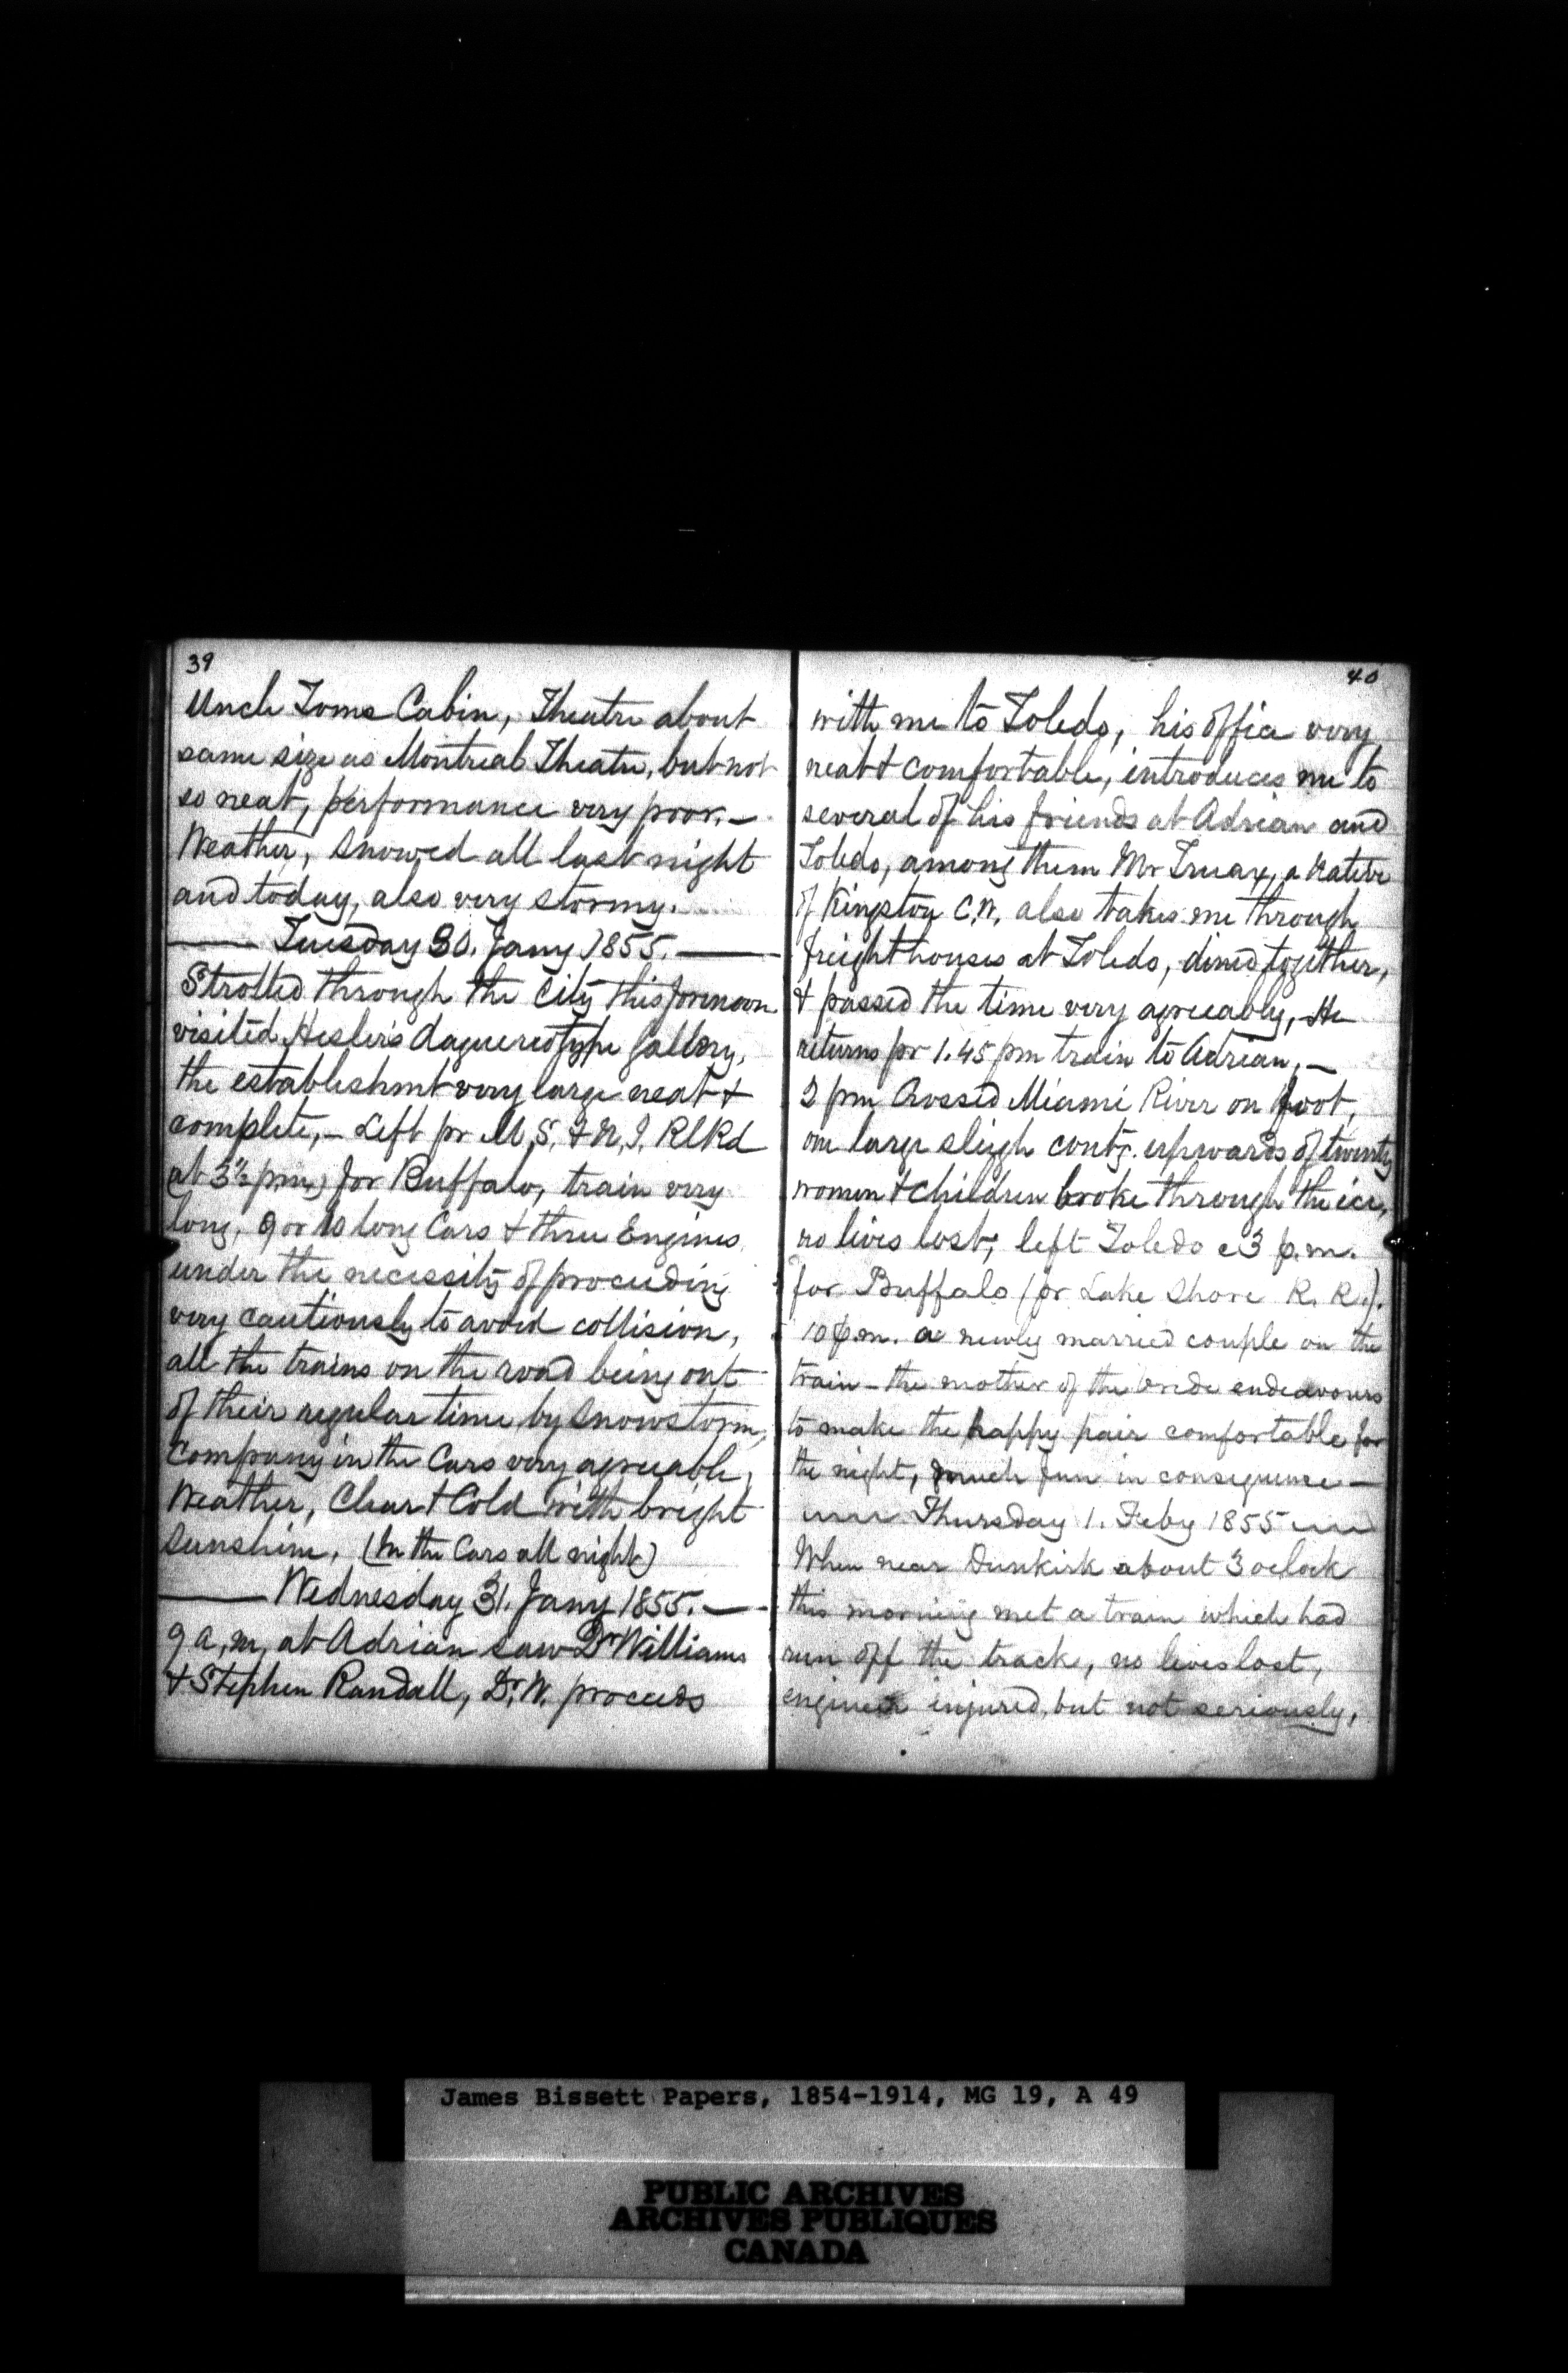 39
Uncle Toms Cabin, Theatre about
same size as Montreal Theatre, but not
so neat, performance very poor. —
Weather, Snowed all last night
and today, also very stormy.
Tuesday 30. Jany 1855.
Strolled through the City this forenoon
visited Hesler's daguereotype Gallery,
the establishmt very large neat &
complete, — Left pr M, S, & N, I, RlRd
(at 3½ pm) for Buffalo, train very
long, 9 or 10 long Cars & three Engines
under the necessity of proceeding
very cautiously to avoid collision,
all the trains on the road being out
of their regular time by Snowstorm,
Company in the Cars very agreeable,
Weather, Clear & Cold with bright
Sunshine, (In the Cars all night)
Wednesday 31. Jany 1855. —
9 a,m, at Adrian saw Dr Williams
& Stephen Randall, Dr. W. proceeds
40
with me to Toledo, his office very
neat & comfortable, introduces me to
several of his friends at Adrian and
Toledo, among them Mr Truax, a Native
of Kingston C.W. also takes me through
freight houses at Toledo, dined together,
& passed the time very agreeably, — He
returns pr 1.45 pm train to Adrian, —
2 pm Crossed Miami River on foot,
one large sleigh contg. upwards of twenty
women & children broke through the ice,
no lives lost, left Toledo @ 3 p.m.
for Buffalo (pr Lake Shore R. R.).
10 p.m. a newly married couple on the
train — the mother of the bride endeavours
to make the happy pair comfortable for
the night, much fun in consequence —
Thursday 1. Feby 1855
When near Dunkirk about 3 oclock
this morning met a train which had
run off the track, no lives lost,
engineer injured, but not seriously,
James Bissett Papers, 1854-1914, MG 19, A 49
PUBLIC ARCHIVES
ARCHIVES PUBLIQUES
CANADA